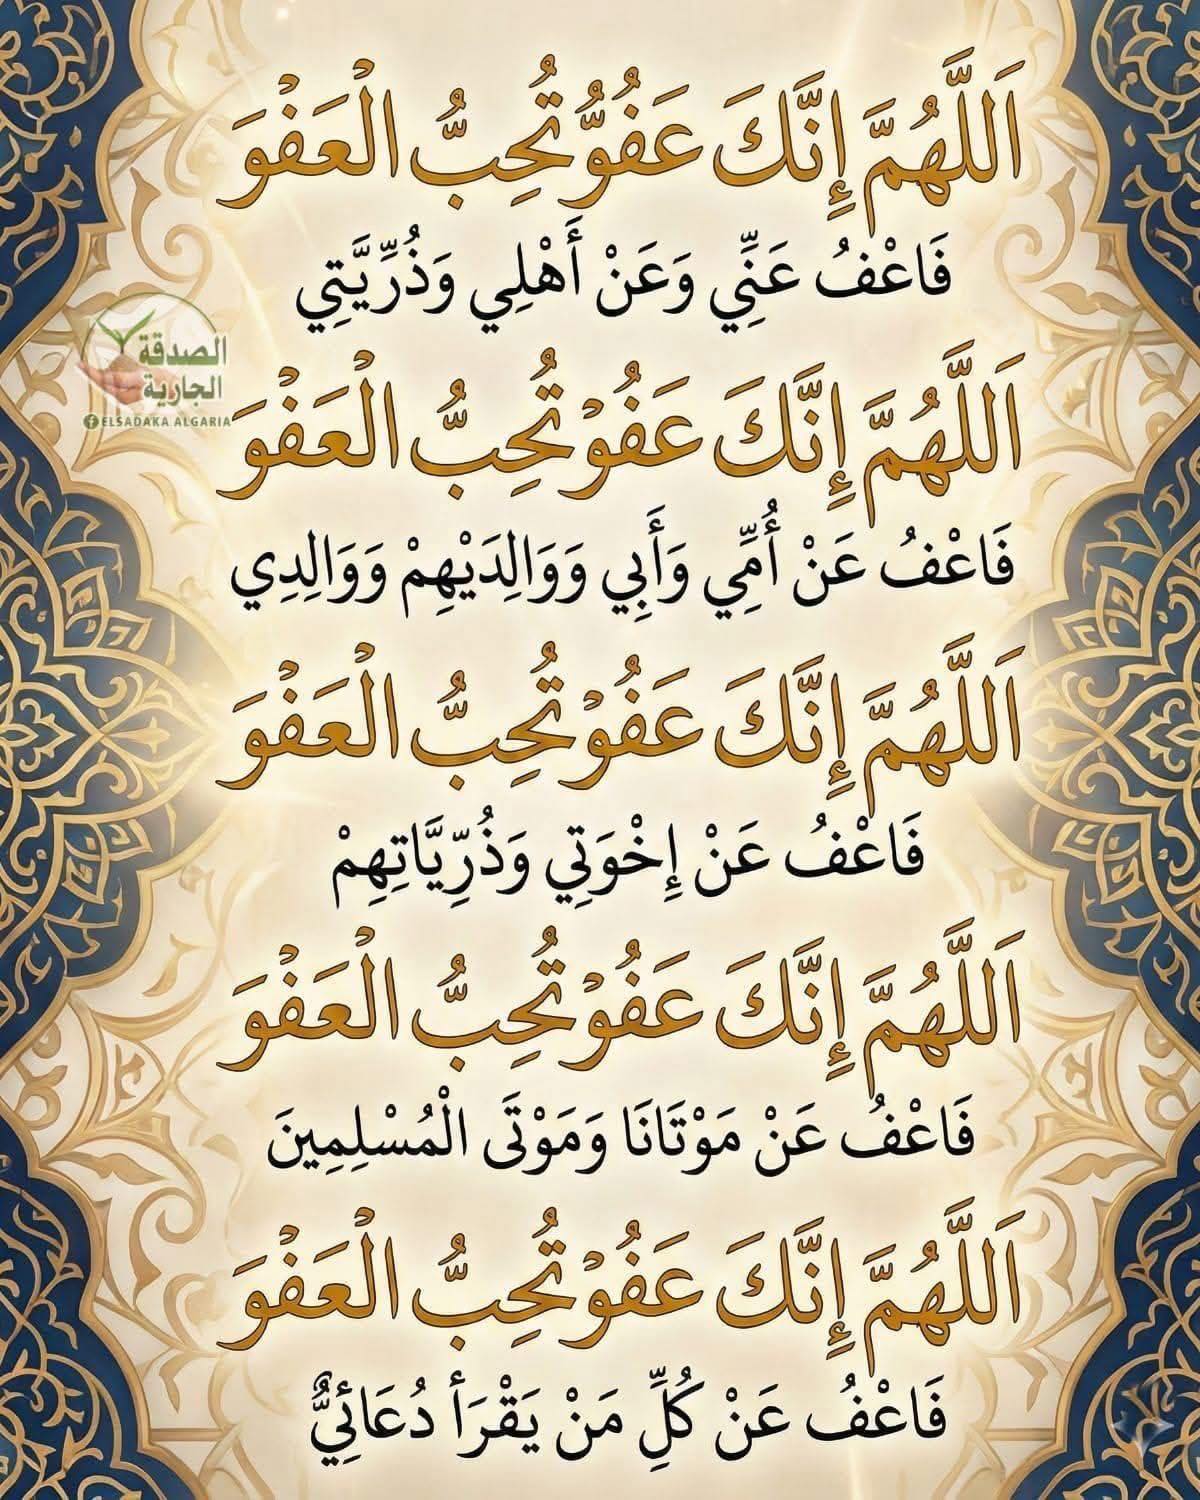 اَللَّهُمَّ إِنَّكَ عَفُوٌّ تُحِبُّ الْعَفْوَ
فَاعْفُ عَنِّي وَعَنْ أَهْلِي وَذُرِّيَّتِي
الصدقة
الجارية
ELSADAKA ALGARIA
اَللَّهُمَّ إِنَّكَ عَفُوْ تُحِبُّ الْعَفْوَ
فَاعْفُ عَنْ أُمِّي وَأَبِي وَوَالِدَيْهِمْ وَوَالِدِي
اَللَّهُمَّ إِنَّكَ عَفُوْ تُحِبُّ الْعَفْوَ
فَاعْفُ عَنْ إِخْوَتِي وَذُرِّيَّاتِهِمْ
اَللَّهُمَّ إِنَّكَ عَفُوْ تُحِبُّ الْعَفْوَ
فَاعْفُ عَنْ مَوْتَانَا وَمَوْتَى الْمُسْلِمِينَ
اَللَّهُمَّ إِنَّكَ عَفُوْ تُحِبُّ الْعَفْوَ
فَاعْفُ عَنْ كُلِّ مَنْ يَقْرَأ دُعَائِيٌّ